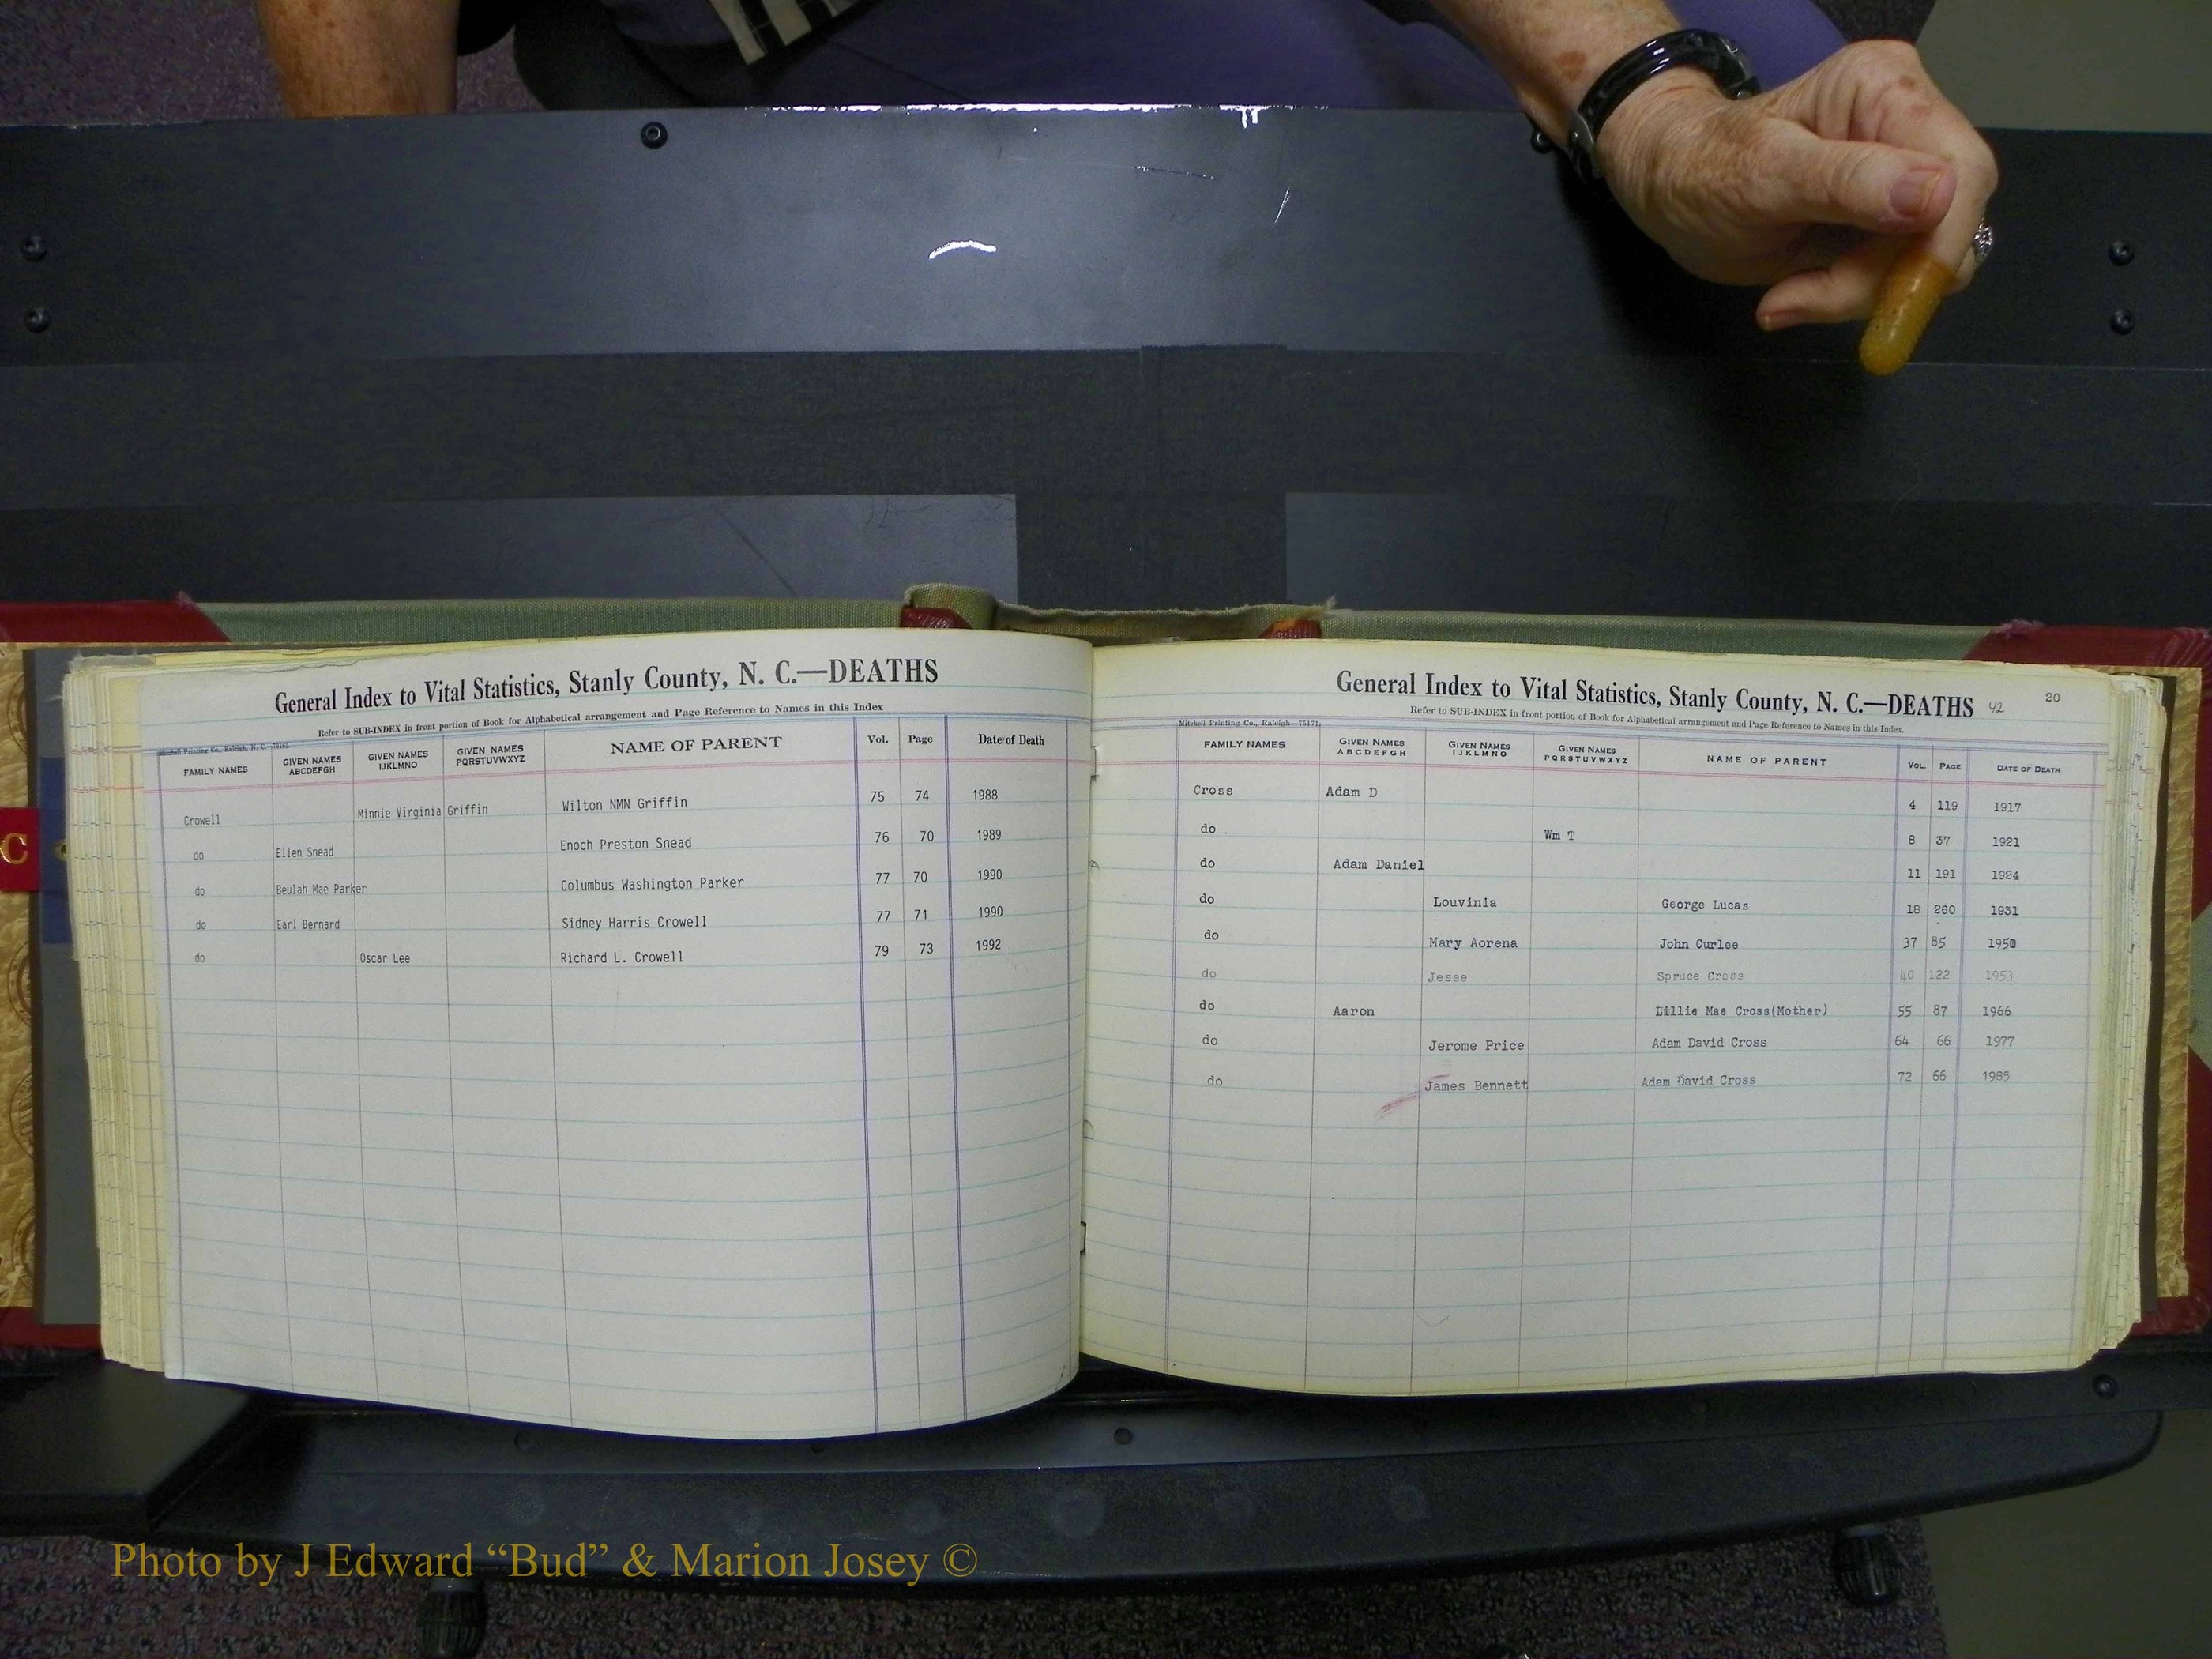 General Index to Vital Statistics, Stanly County, N. C.—DEATHS
Refer to SUB-INDEX in front portion of Book for Alphabetical arrangement and Page Reference to Names in this Index
Mitchell Printing Co., Raleigh, N. C.
FAMILY NAMES GIVEN NAMES ABCDEFGH GIVEN NAMES IJKLMNO GIVEN NAMES PQRSTUVWXYZ NAME OF PARENT Vol. Page Date of Death
Crowell Minnie Virginia Griffin Wilton NMN Griffin 75 74 1988
do Ellen Snead Enoch Preston Snead 76 70 1989
do Beulah Mae Parker Columbus Washington Parker 77 70 1990
do Earl Bernard Sidney Harris Crowell 77 71 1990
do Oscar Lee Richard L. Crowell 79 73 1992
C
General Index to Vital Statistics, Stanly County, N. C.—DEATHS 42 20
Refer to SUB-INDEX in front portion of Book for Alphabetical arrangement and Page Reference to Names in this Index.
Mitchell Printing Co., Raleigh—75171
FAMILY NAMES GIVEN NAMES ABCDEFGH GIVEN NAMES IJKLMNO GIVEN NAMES PQRSTUVWXYZ NAME OF PARENT VOL. PAGE DATE OF DEATH
Cross Adam D 4 119 1917
do Wm T 8 37 1921
do Adam Daniel 11 191 1924
do Louvinia George Lucas 18 260 1931
do Mary Aorena John Curlee 37 85 1950
do Jesse Spruce Cross 40 122 1953
do Aaron Dillie Mae Cross(Mother) 55 87 1966
do Jerome Price Adam David Cross 64 66 1977
do James Bennett Adam David Cross 72 66 1985
Photo by J Edward “Bud” & Marion Josey ©